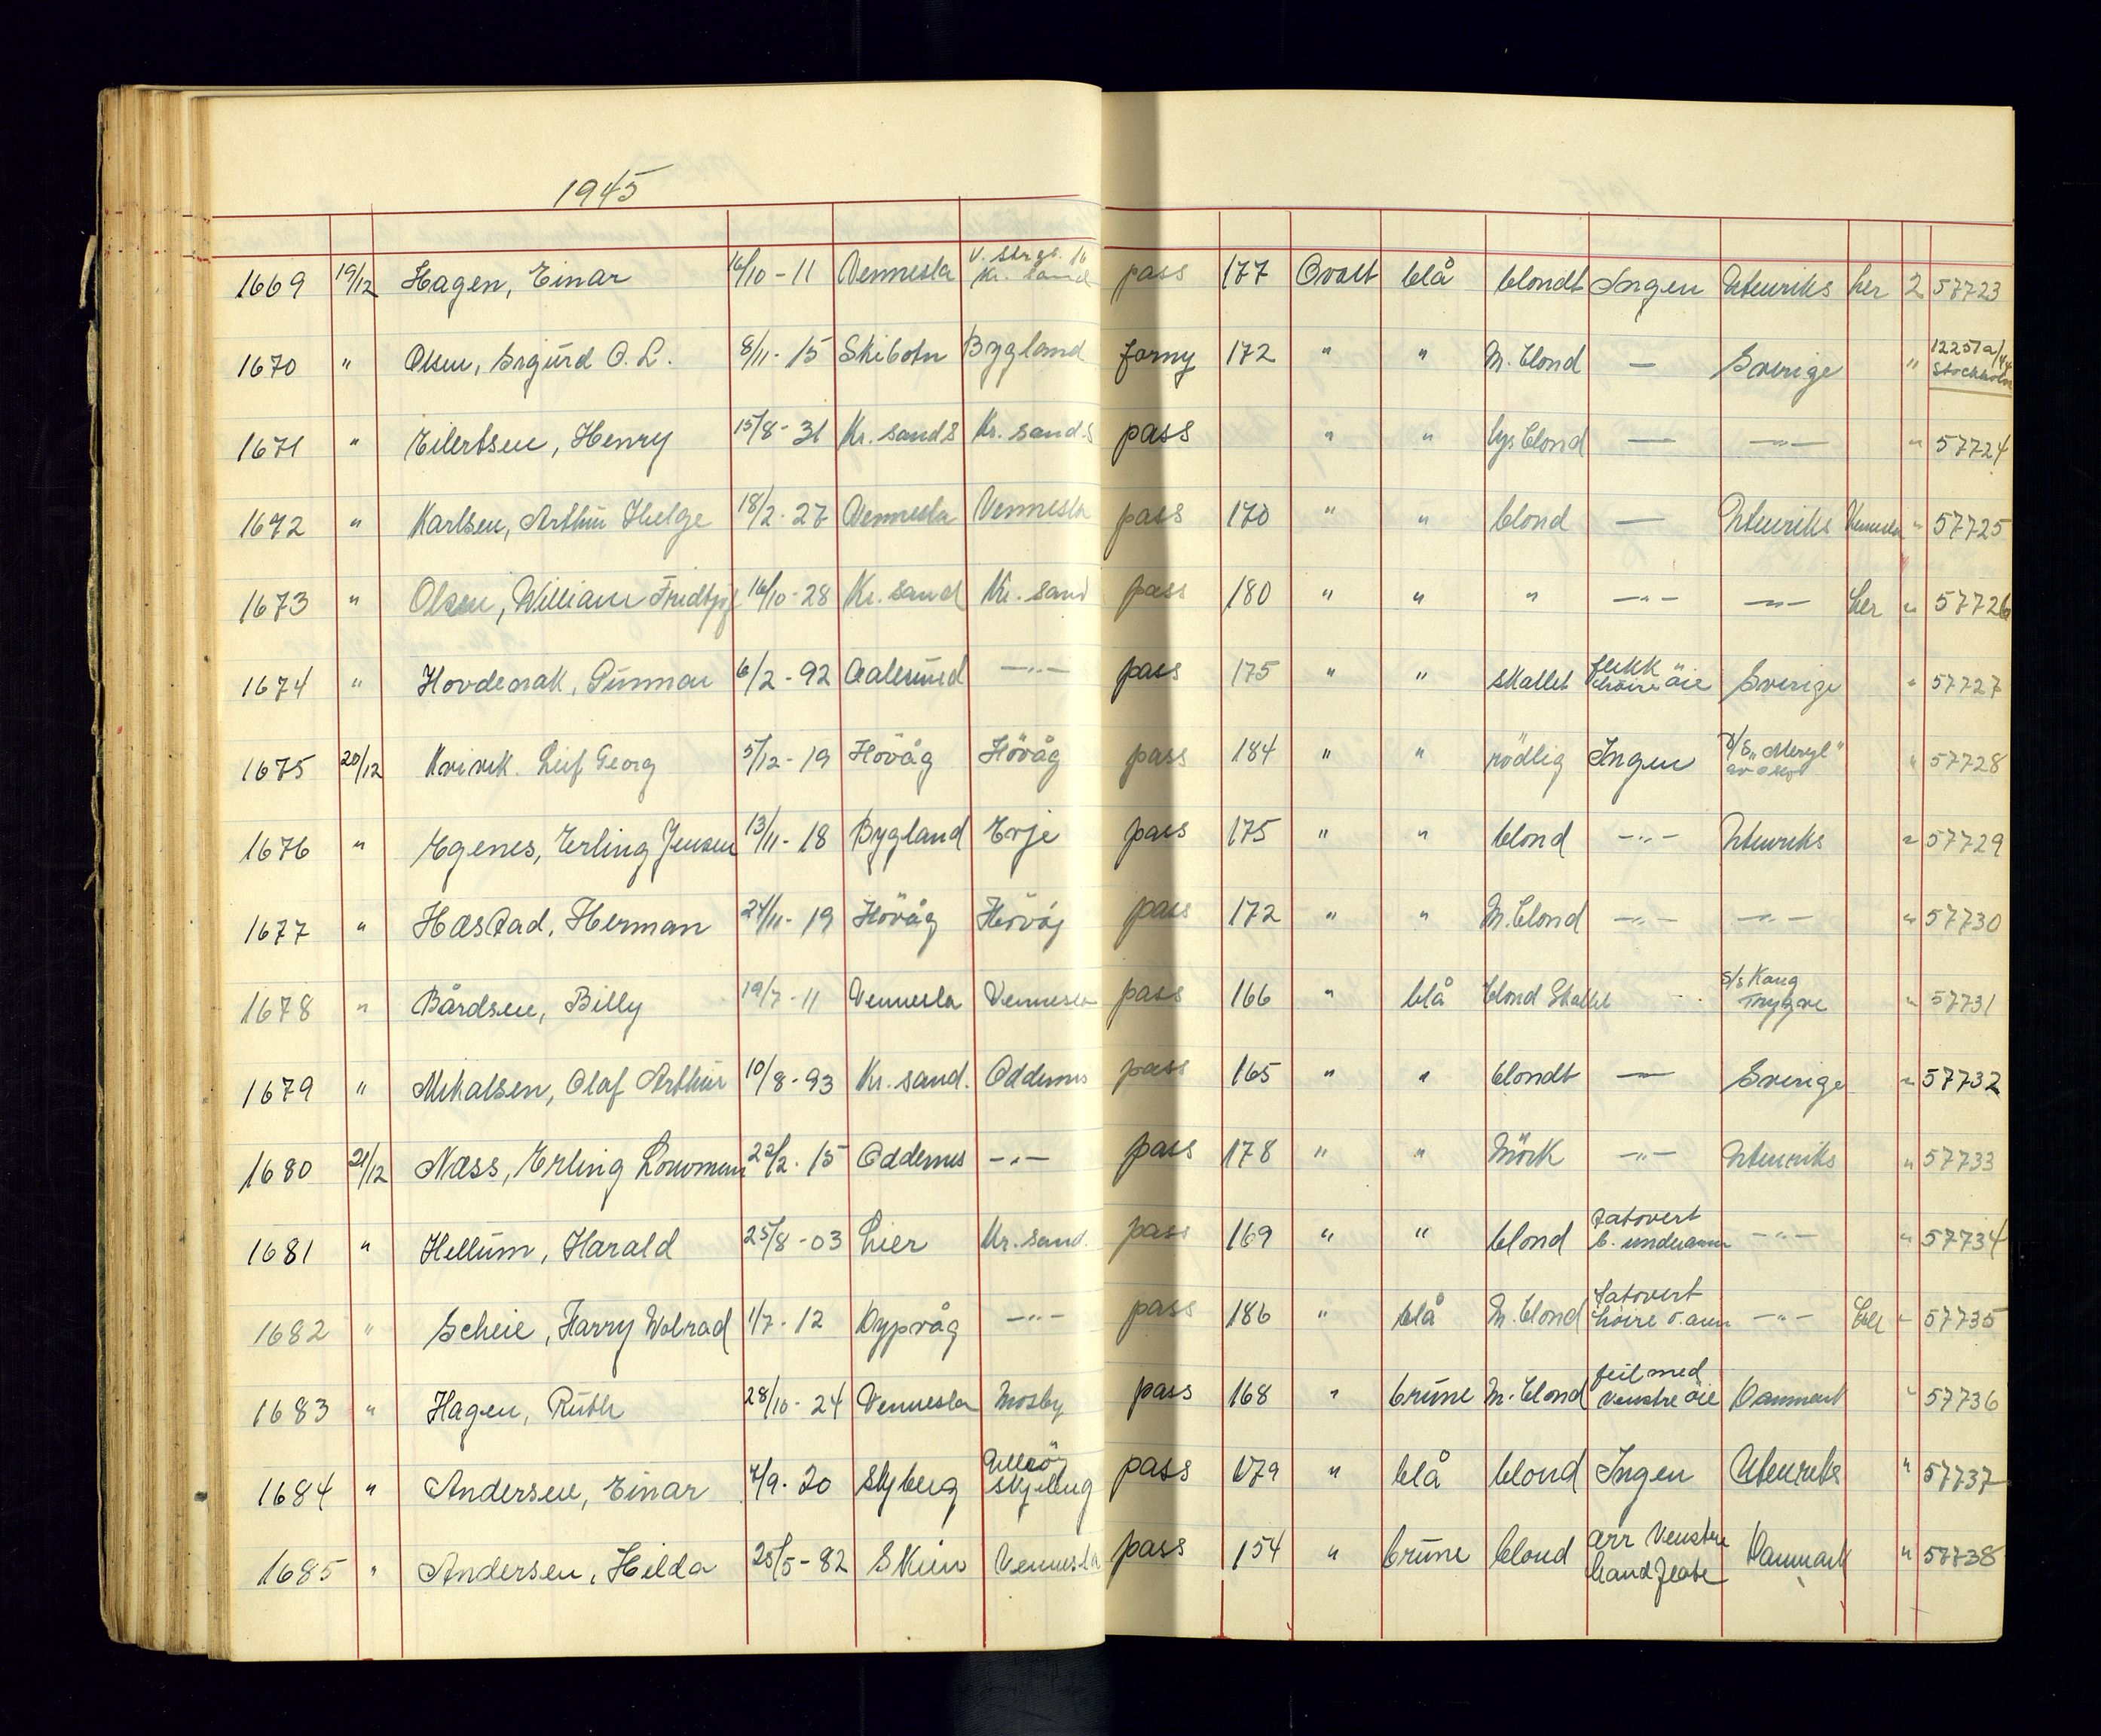 1945
1669 19/12 Hagen, Einar 16/10-11 Vennesla V. Strgt. 16 Kr. sand pass 177 Ovalt blå blondt Ingen Utenriks her 2 57723
1670 " Olsen, Sigurd O. L. 8/11-15 Skibotn Bygland forny 172 " " M. blond — Sverige " 12257a/44 Stockholm
1671 " Eilertsen, Henry 15/8-31 Kr. sand S Kr. sand S pass " " lys blond — —"— " 57724
1672 " Karlsen, Arthur Helge 18/2-27 Vennesla Vennesla pass 170 " " blond — Utenriks Vennesla " 57725
1673 " Olsen, William Fridtjof 16/10-28 Kr. sand Kr. sand pass 180 " " " —"— —"— her " 57726
1674 " Hovdenak, Gunnar 6/2-92 Aalesund —"— pass 175 " " skallet flekk höire öie Sverige " 57727
1675 20/12 Kvivik. Leif Georg 5/12-19 Hövåg Hövåg pass 184 " " rödlig Ingen " 57728
1676 " Egenes, Erling Jensen 13/11-18 Bygland Evje pass 175 " " blond —"— Utenriks " 57729
1677 " Hæstad, Herman 24/11-19 Hövåg Hövåg pass 172 " " M. blond —"— —"— " 57730
1678 " Bårdsen, Billy 19/7-11 Vennesla Vennesla pass 166 " blå blond Skallet —"— S/s Kong Trygve " 57731
1679 " Mikalsen, Olaf Arthur 10/8-93 Kr. sand. Oddernes pass 165 " " blondt — Sverige " 57732
1680 21/12 Næss, Erling 22/2-15 Oddernes —"— pass 178 " " Mörk —"— Utenriks " 57733
1681 " Hellum, Harald 25/8-03 Lier Kr. sand. pass 169 " " blond tatovert b. underarm —"— " 57734
1682 " Scheie, Harry Wolrad 1/7-12 Dypvåg —"— pass 186 " blå M. blond tatovert höire o. arm —"— " 57735
1683 " Hagen, Ruth 28/10-24 Vennesla Mosby pass 168 " brune M. blond feil med venstre öie Danmark " 57736
1684 " Andersen, Einar 7/9-20 pass 179 " blå blond Ingen Utenriks " 57737
1685 " Andersen, Hilda 25/5-82 Skien Vennesla pass 154 " brune blond arr venstre hand flate Danmark " 57738